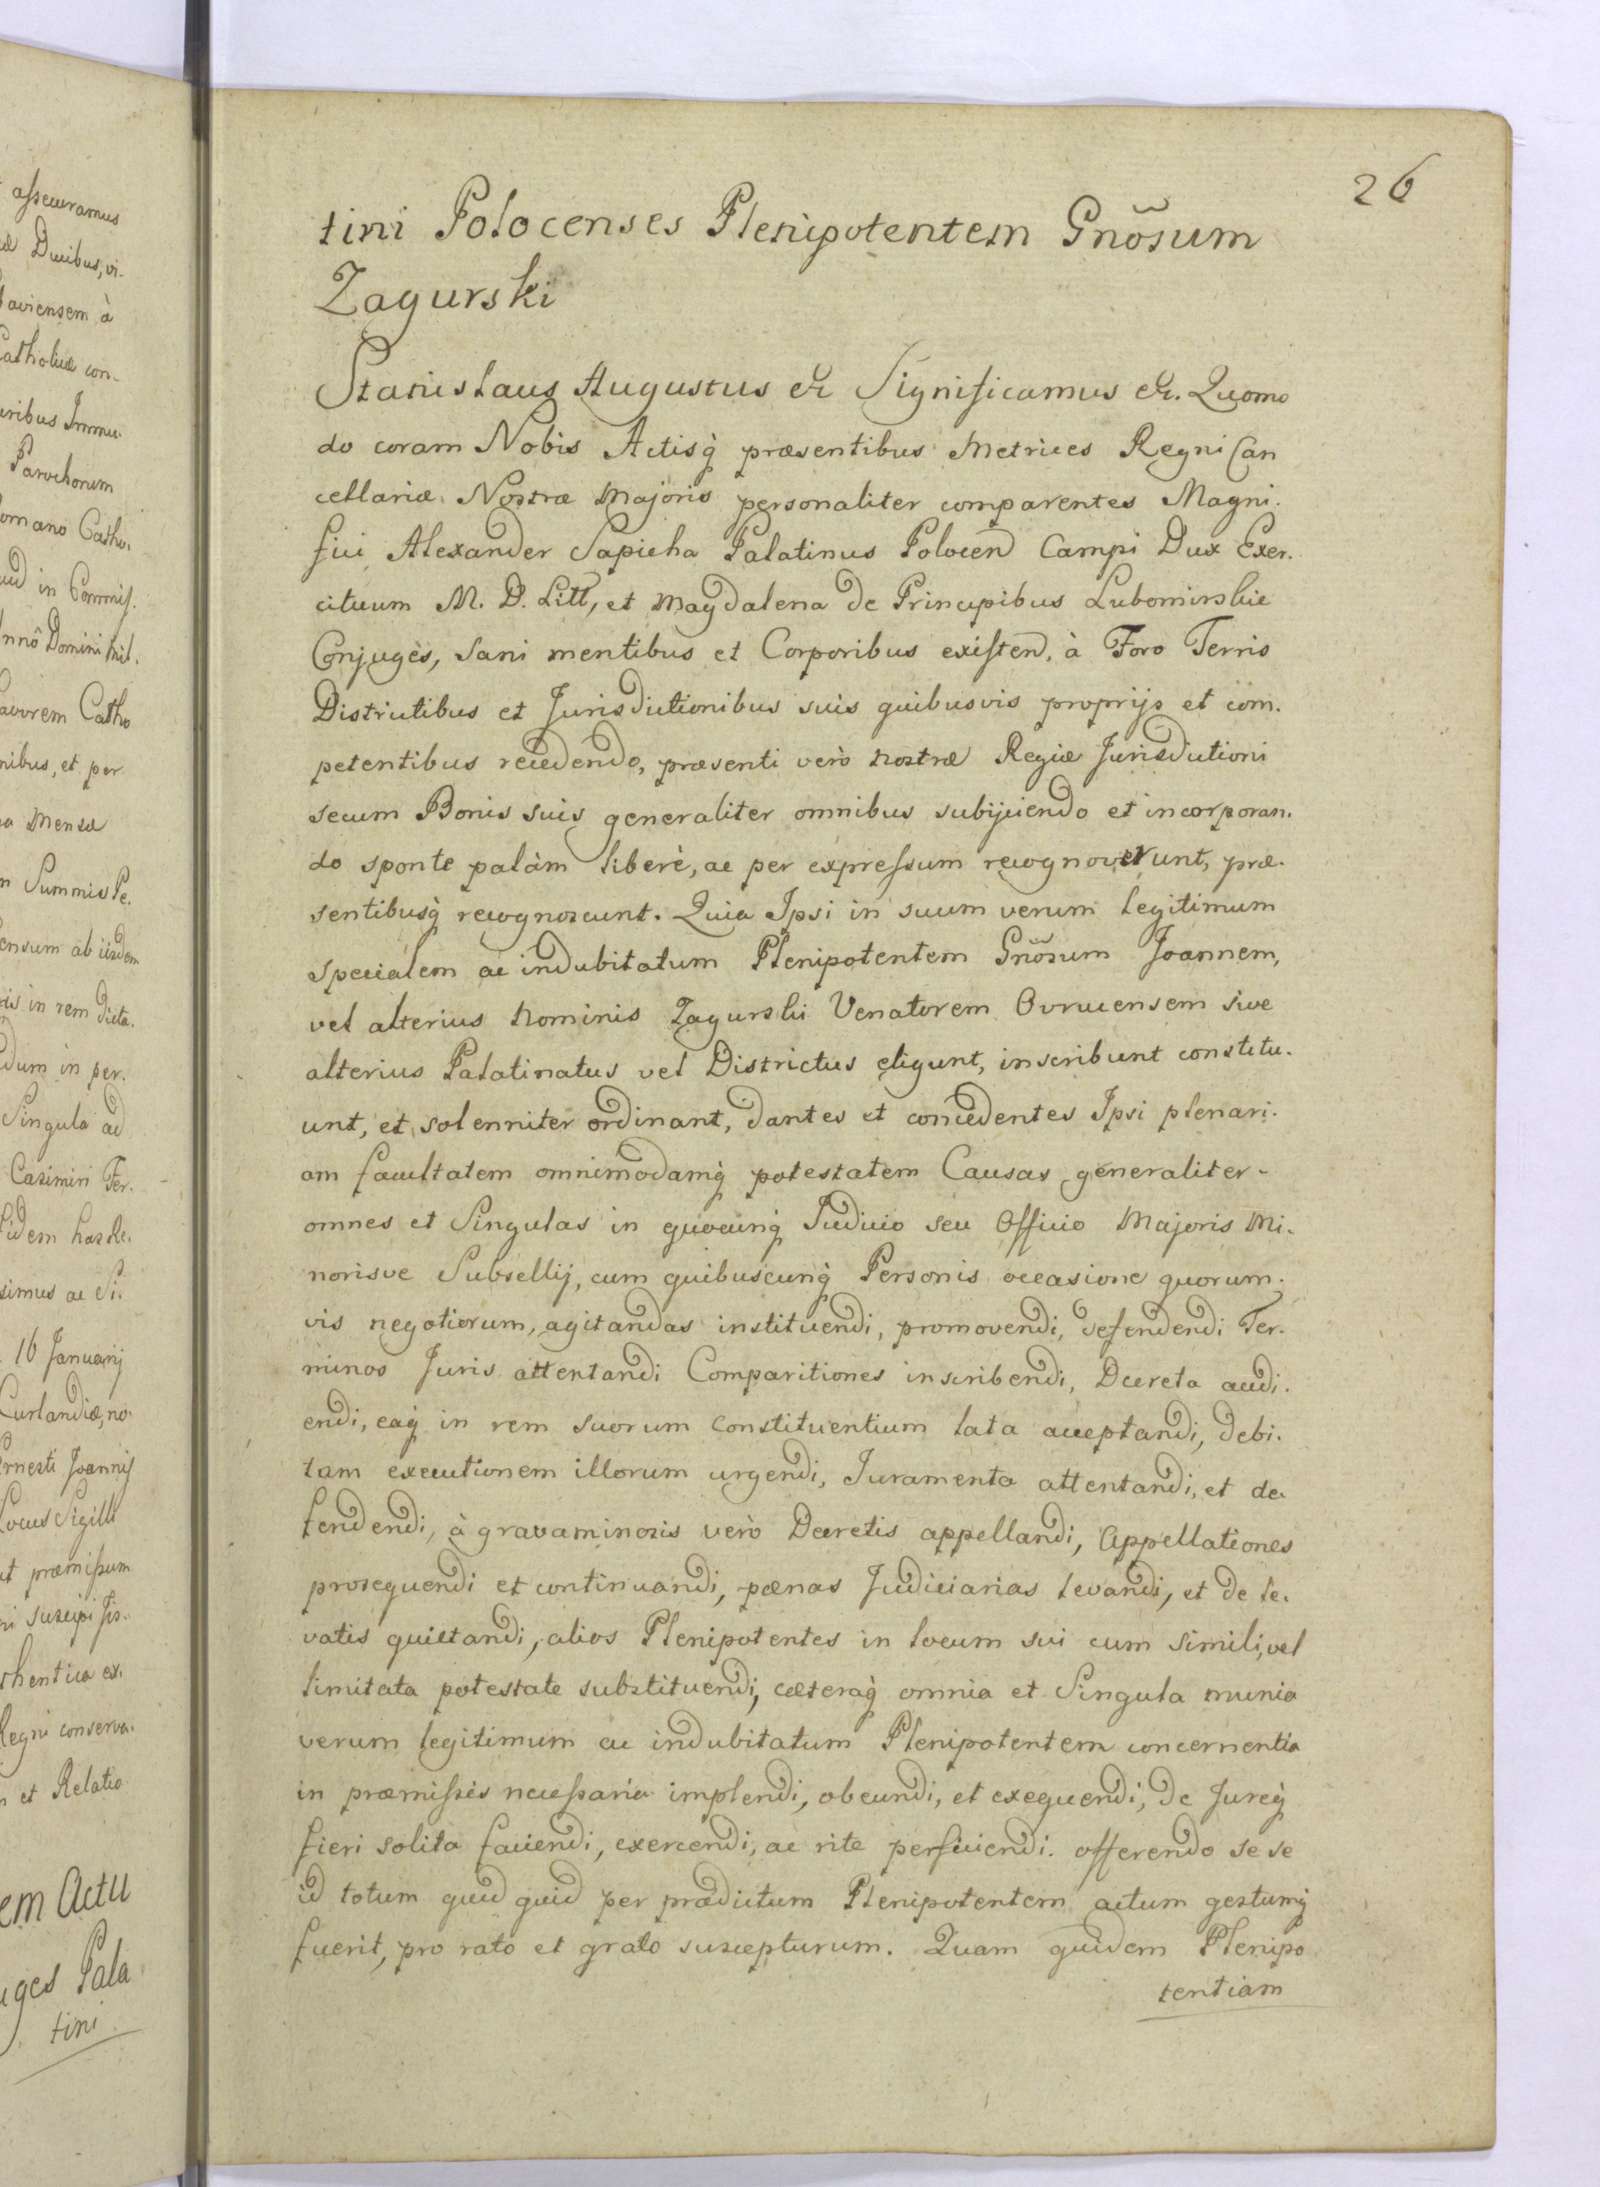 26
tini Polocenses Plenipotentem Gnõsum
Zagurski
Stanislaus Augustus &c Significamus &c. Quomo
do coram Nobis Actisq̀ præsentibus Metrices Regni Can
cellariæ Nostræ Majoris personaliter comparentes Magni.
fici Alexander Sapieha Palatinus Polocen Campi Dux Exer.
cituum M. D. Litt, et Magdalena de Principibus Lubomirskie
Conjugès, sani mentibus et Corporibus existen, à Foro Terris
Districtibus et Jurisdictionibus suis quibusvis proprijs et com.
petentibus recedendo, præsenti verò nostræ Regiæ Jurisdictioni
secum Bonis suis generaliter omnibus subijciendo et incorporan.
do sponte palàm liberè, ac per expressum recognoverunt, præ.
sentibusq̀ recognoscunt. Quia Ipsi in suum verum legitimum
specialem ac indubitatum Plenipotentem Gnõsum Joannem,
vel alterius nominis Zagurski Venatorem Ovrucensem sive
alterius Palatinatus vel Districtus eligunt, inscribunt constitu.
unt, et solenniter ordinant, dantes et concedentes Ipsi plenari.
am facultatem omnimodamq̀ potestatem Causas generaliter-
omnes et Singulas in quocunq̀ Judicio seu Officio Majoris Mi.
norisve Subsellij, cum quibuscunq̀ Personis occasione quorum.
vis negotiorum, agitandas instituendi, promovendi, defendendi Ter.
minos Juris attentandi Comparitiones inscribendi, Decreta audi.
endi, eaq̀ in rem suorum constituentium lata acceptandi, debi.
tam executionem illorum urgendi, Juramenta attentandi, et de.
fendendi, à gravaminosis verò Decretis appellandi, Appellationes
prosequendi et continuandi, pænas Judiciarias levandi, et de le.
vatis quietandi, alios Plenipotentes in locum sui cum simili, vel
limitata potestate substituendi, cæteraq̀ omnia et Singula munia
verum legitimum ac indubitatum Plenipotentem concernentia
in præmissis necessaria implendi, obeundi, et exequendi, de Jureq̀
fieri solita faciendi, exercendi, ac rite perficiendi. offerendo se se
id totum quid quid per prædictum Plenipotentem actum gestumq̀
fuerit, pro rato et grato suscepturum. Quam quidem Plenipo
tentiam